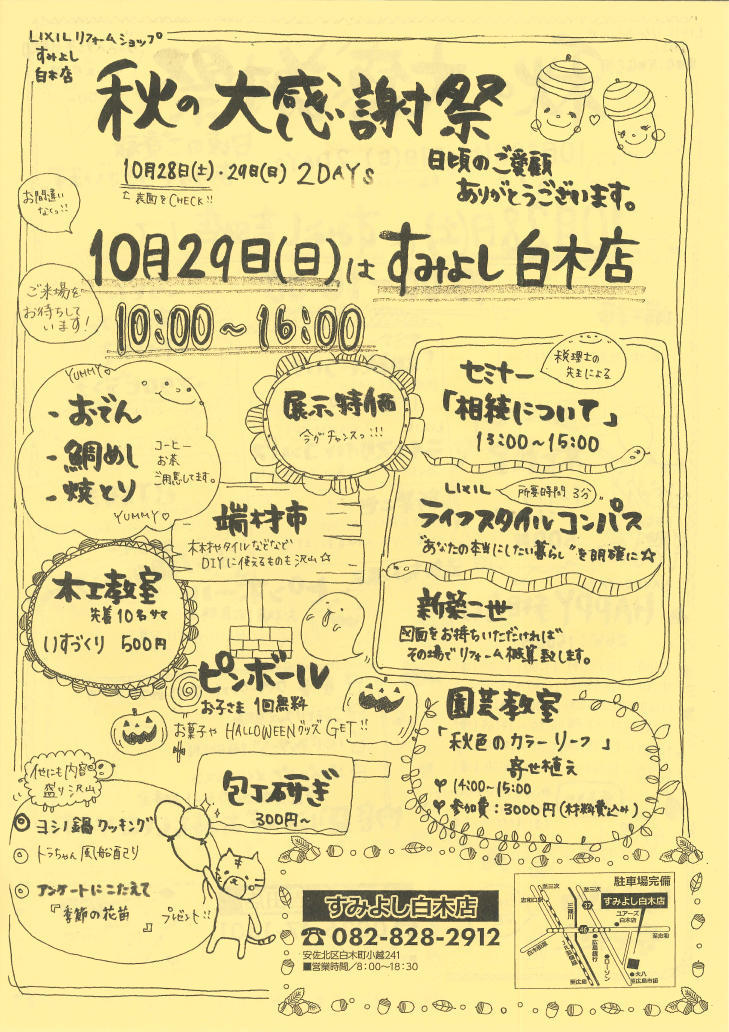 LIXILリフォームショップ
すみよし
白木店
秋の大感謝祭
10月28日(土)・29日(日) 2DAYS
↑表面をCHECK!!
日頃のご愛顧
ありがとうございます。
お間違い
なくっ!!
10月29日(日)はすみよし白木店
ご来場を
お待ちして
います!
10:00～16:00
YUMMY♡
・おでん
・鯛めし
・焼とり
コーヒー
お茶
ご用意してます。
YUMMY♡
展示特価
今がチャンスっ!!!
税理士の
先生による
セミナー
「相続について」
13:00～15:00
LIXIL
所要時間 3分
ライフスタイルコンパス
"あなたの本当にしたい暮らし"を明確に☆
新築二世
図面をお持ちいただければ
その場でリフォーム概算致します。
端材市
木材やタイルなどなど
DIYに使えるものも沢山☆
木工教室
先着10名サマ
いすづくり 500円
ピンボール
お子さま 1回無料
お菓子や HALLOWEENグッズ GET!!
園芸教室
「秋色のカラーリーフ」
寄せ植え
14:00～15:00
参加費:3000円(材料費込み)
包丁研ぎ
300円～
他にも内容
盛り沢山
◎ヨシノ鍋クッキング
○トラちゃん風船配り
○アンケートにこたえて
『季節の花苗』プレゼント!!
すみよし白木店
☎082-828-2912
安佐北区白木町小越241
■営業時間／8:00～18:30
駐車場完備
すみよし白木店
至三次
至三次
志和口駅
三篠川
37
ユアーズ
白木店
46
至志和
白木街道
JR芸備線
広島銀行
ローソン
大八
至広島
至広島市街